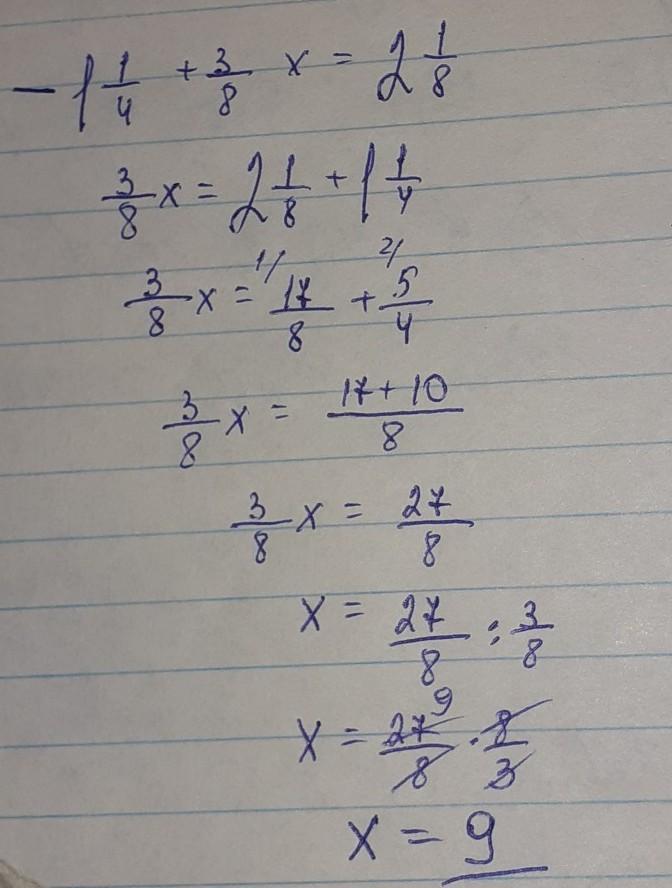 - 1 1/4 + 3/8 x = 2 1/8
3/8 x = 2 1/8 + 1 1/4
3/8 x = 1/ 17/8 + 2/ 5/4
3/8 x = 17+10/8
3/8 x = 27/8
x = 27/8 : 3/8
x = 27/8 9 · 8/3
x = 9